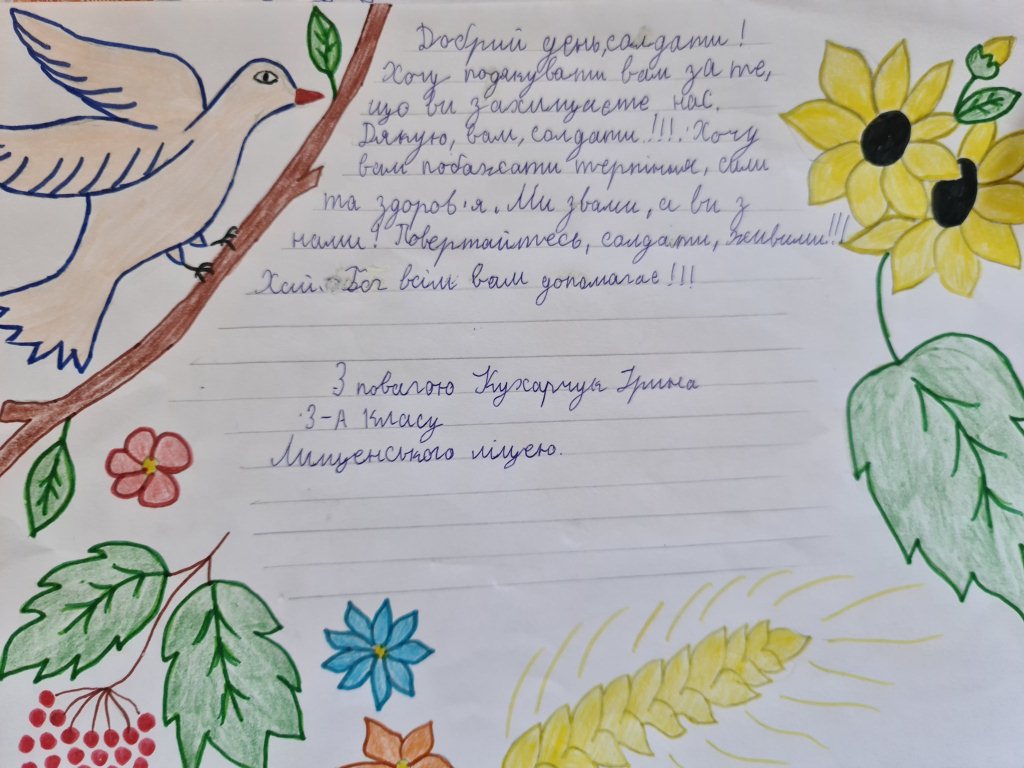 Добрий день, солдати!
Хочу подякувати вам за те,
що ви захищаєте нас.
Дякую, вам, солдати!!!. Хочу
вам побажати терпіння, сили
та здоров'я. Ми звами, а ви з
нами! Повертайтесь, солдати, живими!!!
Хай. Бог всім вам допомагає!!!
З повагою Кухарчук Ірина
3-А класу
Лищенського ліцею.